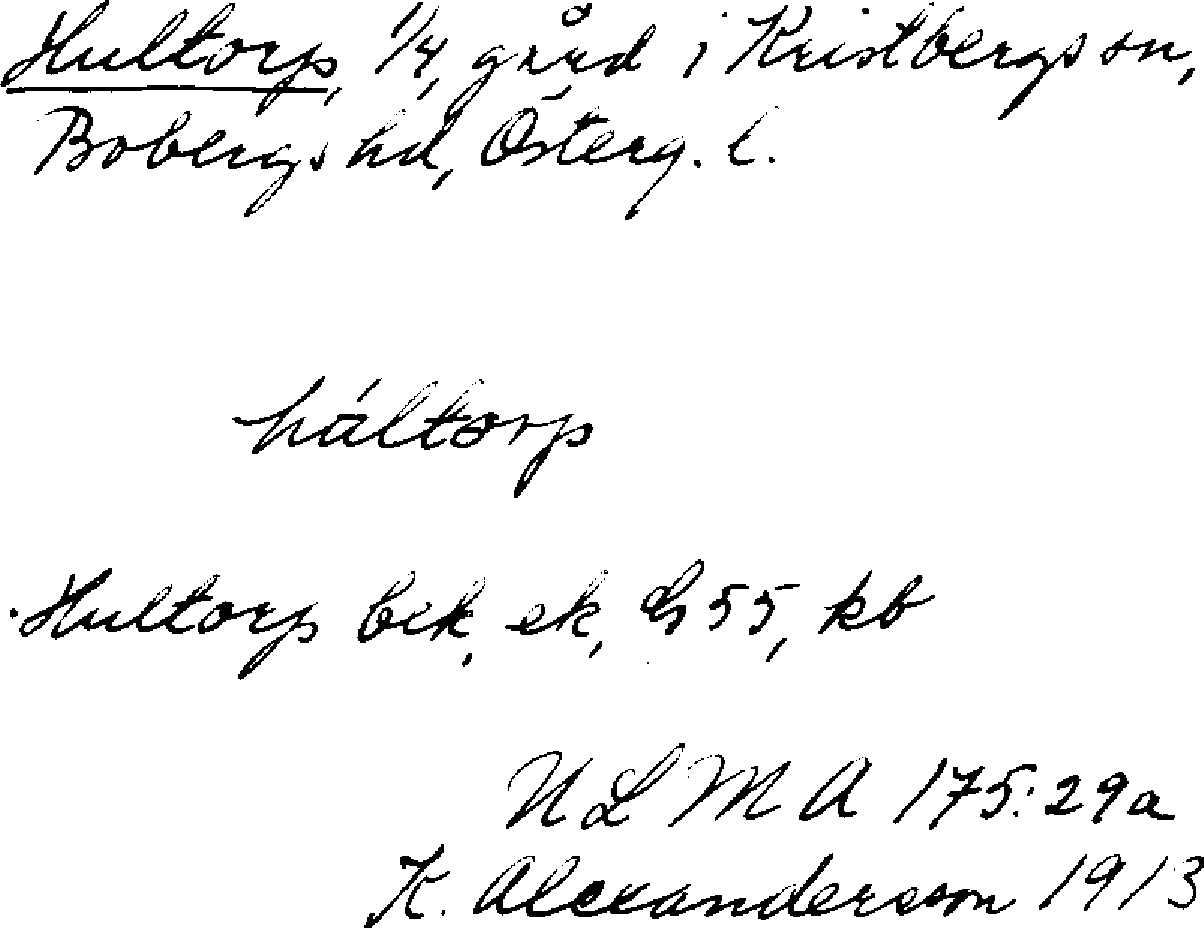 Hultorp, 1/4, gård i Kristbergs sn,
Bobergs hd, Österg. l.
háltorp
Hultorp bek, ek, G 55, kb
ULMA 175:29a
K. Alexandersson 1913